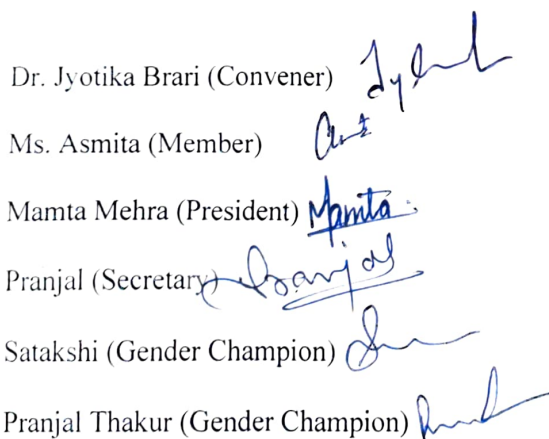 Dr. Jyotika Brari (Convener)
Ms. Asmita (Member)
Mamta Mehra (President) Mamta
Pranjal (Secretary) Pranjal
Satakshi (Gender Champion)
Pranjal Thakur (Gender Champion)